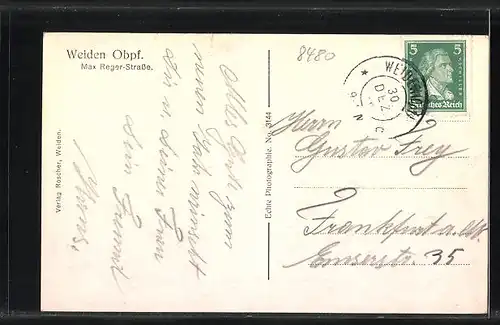 Weiden Obpf.
Max Reger-Straße.
Alles Gute zum
neuen Jahr wünscht
Dir u. Deiner Frau
Dein Freund
Verlag Roscher, Weiden.
Echte Photographie. No. 3144
8480
WEIDEN
30
DEZ
5 5
Deutsches Reich
Herrn
Gustav Frey
Frankfurt a. M.
Emserstr. 35